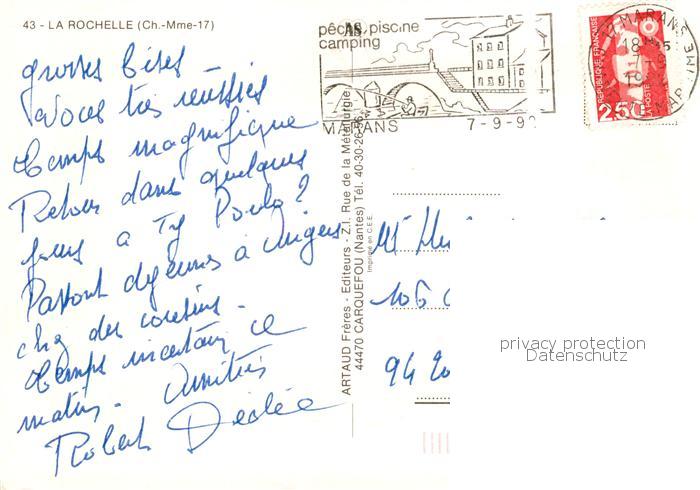 43 - LA ROCHELLE (Ch.-Mme-17)
grosses bises -
Noces très réussies
Temps magnifique
Retour dans quelques
jours à Ty
Partons déjeuner à Angers
chez des cousins -
Temps incertain ce
matin - Amitiés
Robert Dédée
pêche, piscine
camping
MARANS 7-9-9
17 MARANS
18H
RÉPUBLIQUE FRANÇAISE
2,50
LA POSTE
ARTAUD Frères - Editeurs - Z.I. Rue de la Métallurgie
44470 CARQUEFOU (Nantes) Tél. 40-30-26-56
Imprimé en C.E.E.
106
94 20
privacy protection
Datenschutz